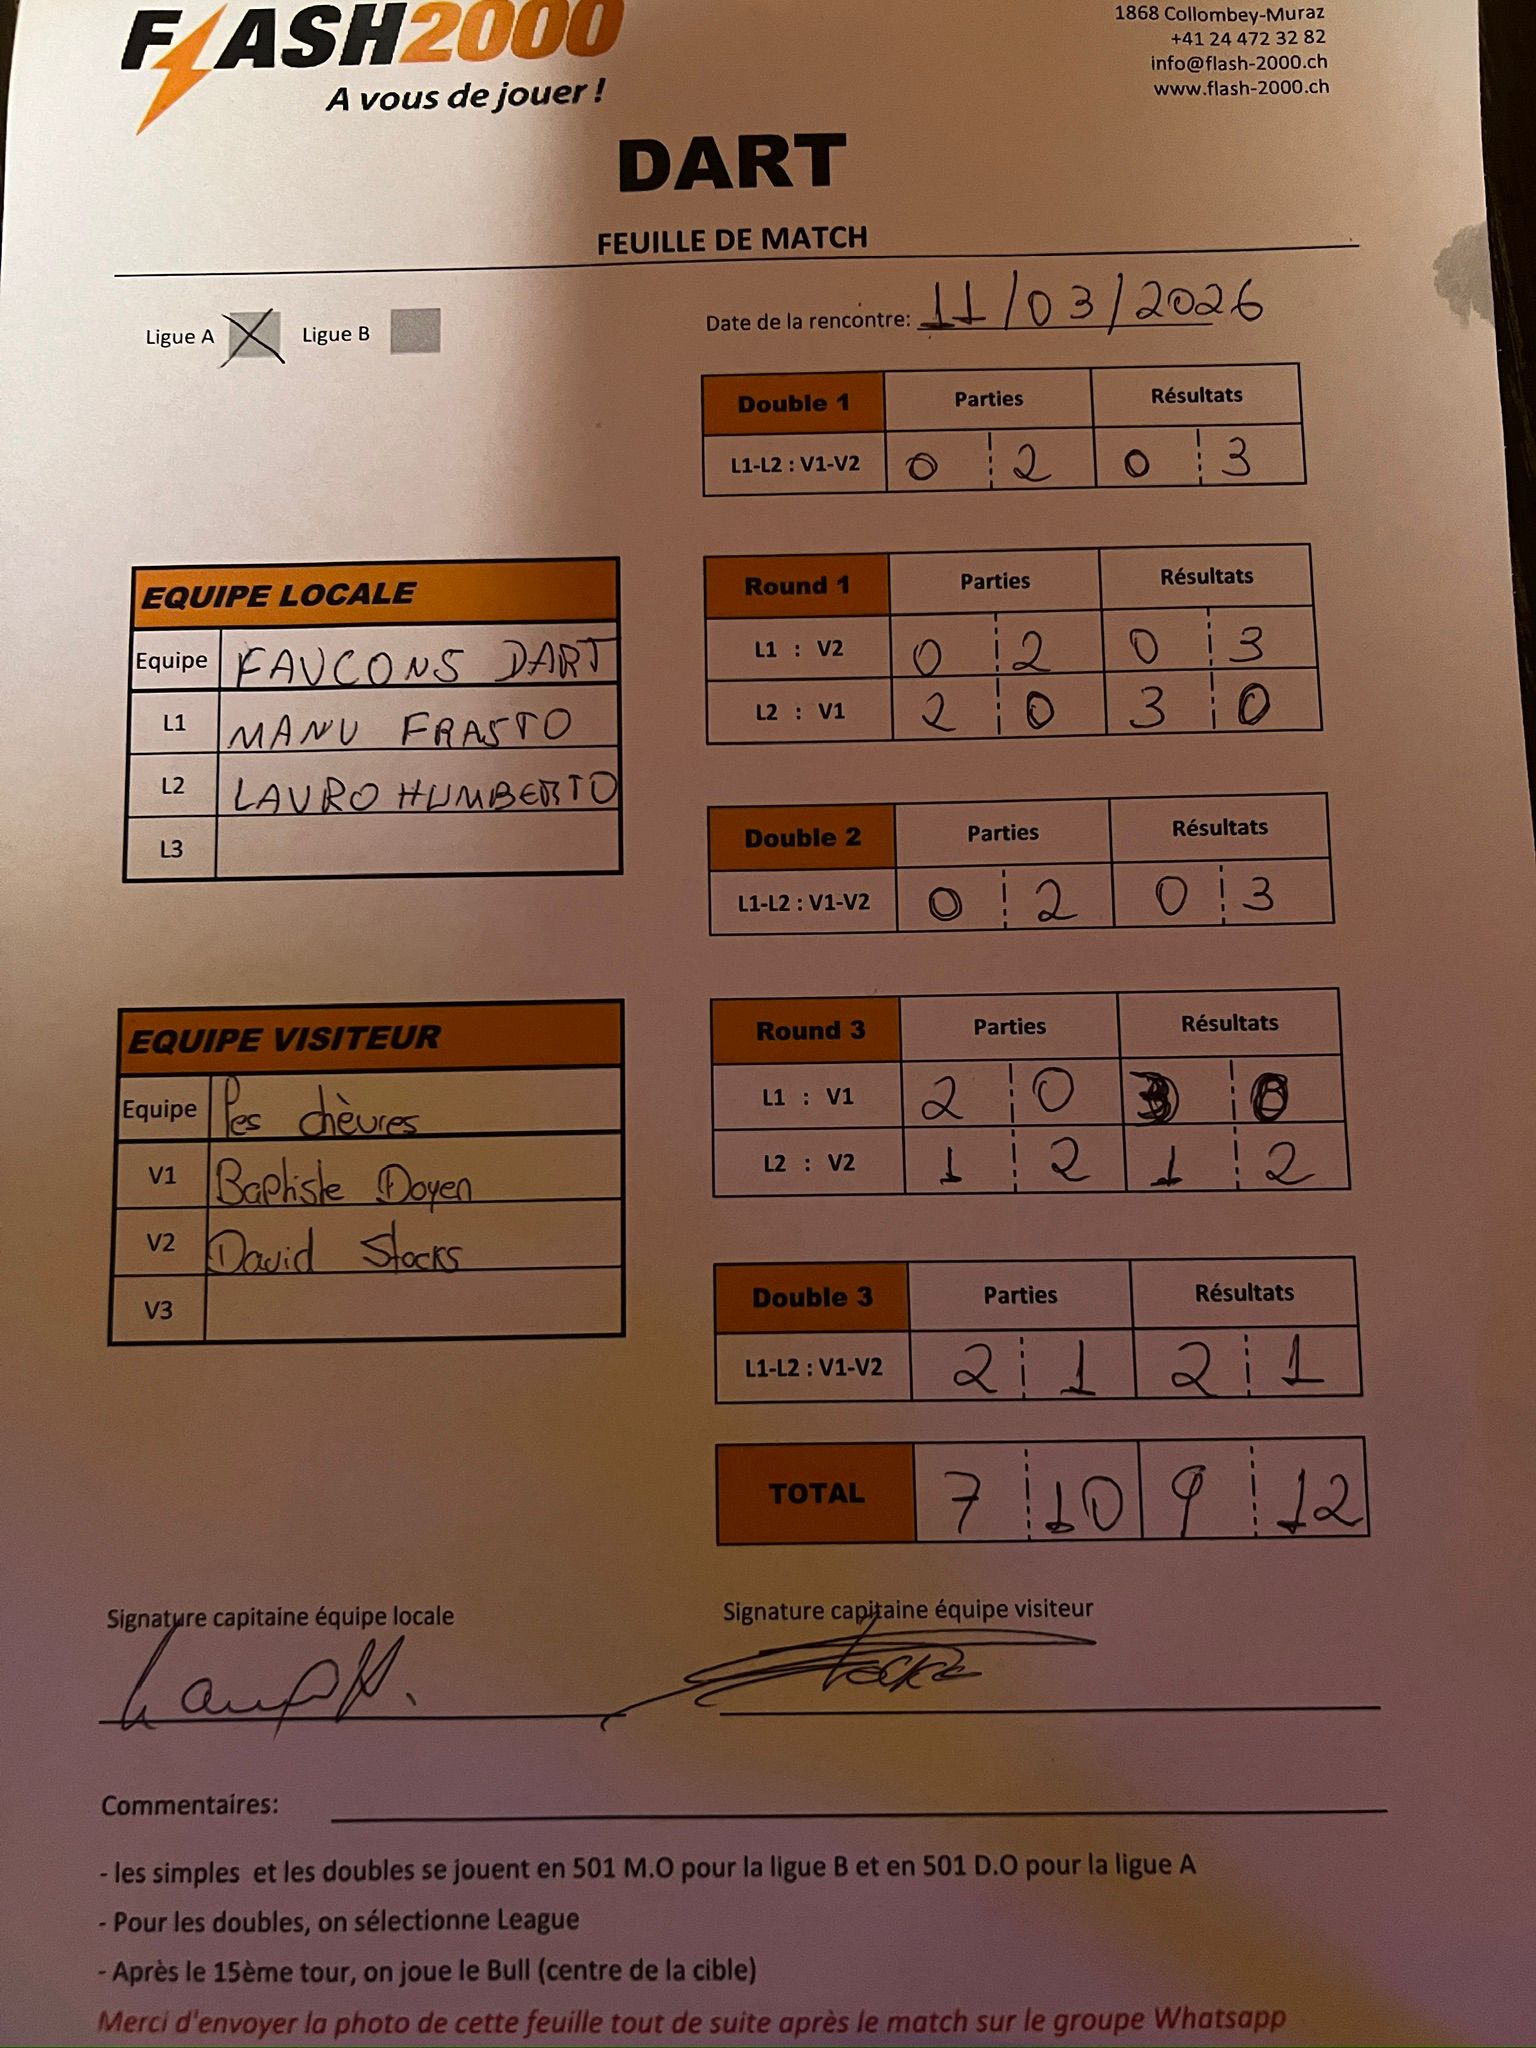 FLASH2000
A vous de jouer !
1868 Collombey-Muraz
+41 24 472 32 82
info@flash-2000.ch
www.flash-2000.ch
DART
FEUILLE DE MATCH
Ligue A X Ligue B
Date de la rencontre: 11/03/2026
Double 1 Parties Résultats
L1-L2 : V1-V2 0 2 0 3
EQUIPE LOCALE
Equipe FAUCONS DART
L1 MANU FRASTO
L2 LAURO HUMBERTO
L3
Round 1 Parties Résultats
L1 : V2 0 2 0 3
L2 : V1 2 0 3 0
Double 2 Parties Résultats
L1-L2 : V1-V2 0 2 0 3
EQUIPE VISITEUR
Equipe les chèvres
V1 Baptiste Doyen
V2 David Stocks
V3
Round 3 Parties Résultats
L1 : V1 2 0 3 0
L2 : V2 1 2 1 2
Double 3 Parties Résultats
L1-L2 : V1-V2 2 1 2 1
TOTAL 7 10 9 12
Signature capitaine équipe locale
Signature capitaine équipe visiteur
Commentaires:
- les simples et les doubles se jouent en 501 M.O pour la ligue B et en 501 D.O pour la ligue A
- Pour les doubles, on sélectionne League
- Après le 15ème tour, on joue le Bull (centre de la cible)
Merci d'envoyer la photo de cette feuille tout de suite après le match sur le groupe Whatsapp